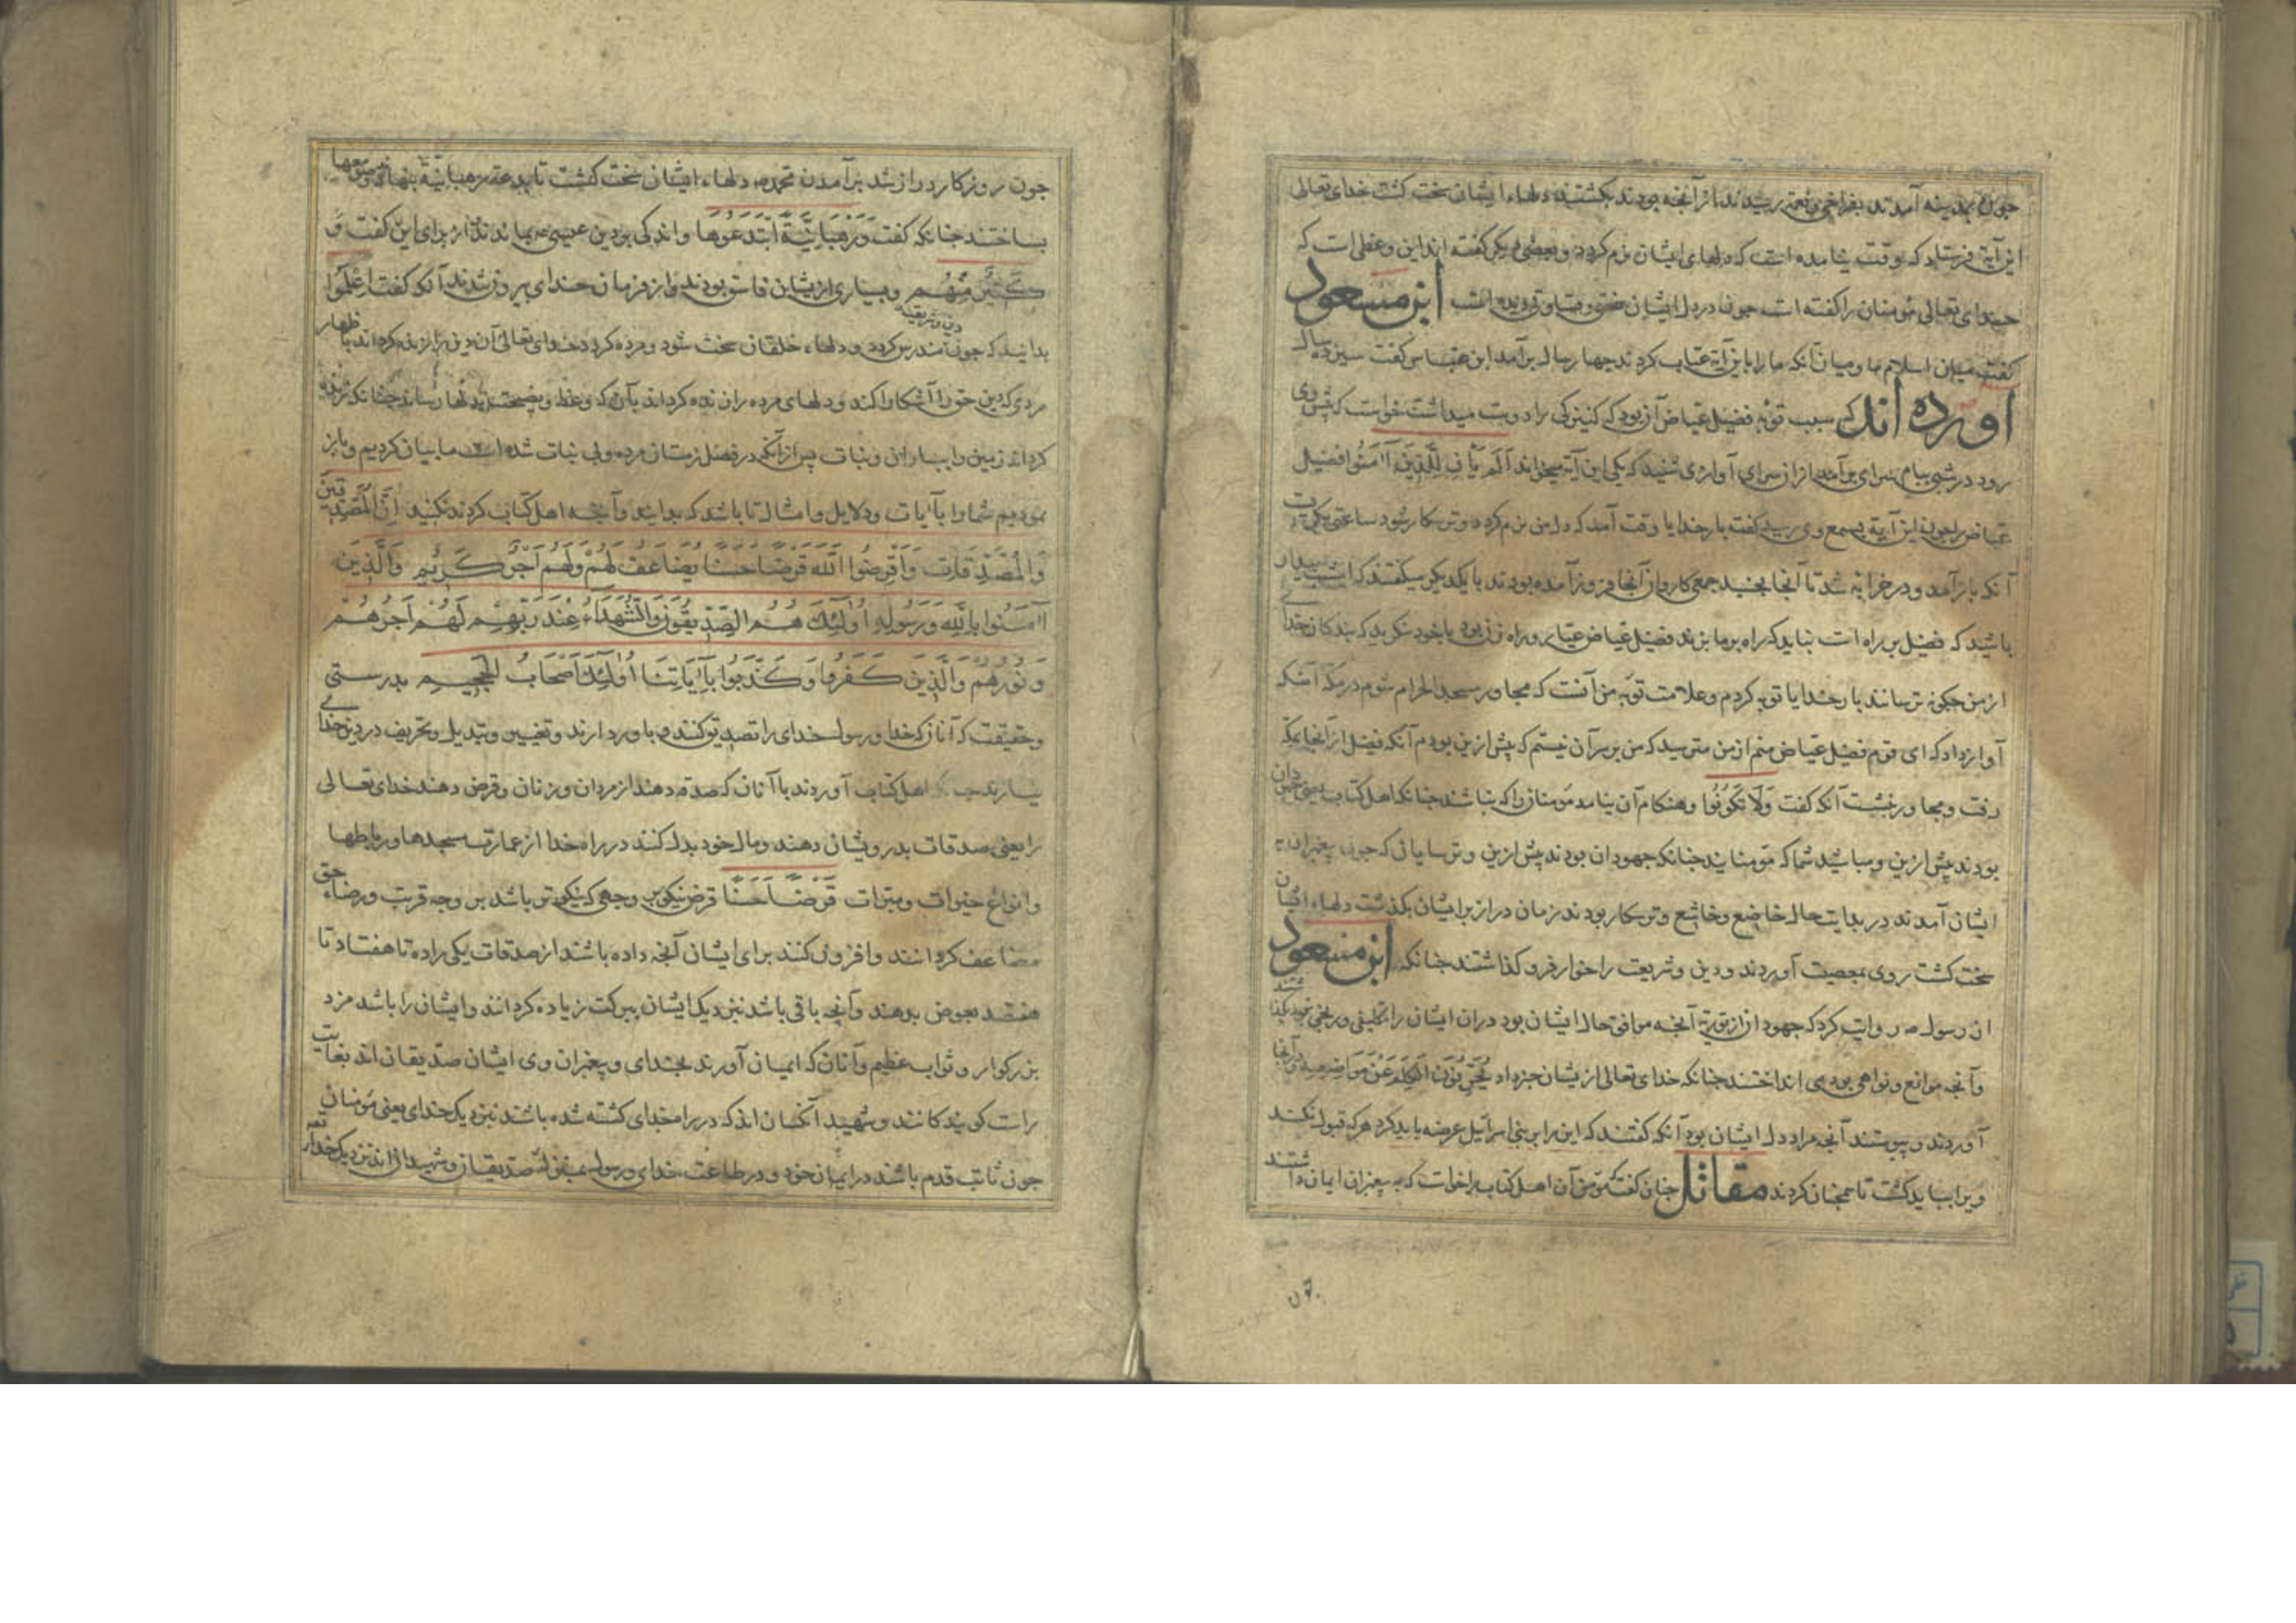 چون بمدینه آمدند بفراخی و نعمت رسیدند از آنجه بودند بکشتند دلهاء ایشان سخت کشت خدای تعالی
این آیة فرستاد که وقت نیامده است که دلهای ایشان نرم کردد و بعضی دیکر کفته اند این وعظی است که
خدای تعالی مؤمنان را کفته است جون در دل ایشان سختی و قساوتی دیده است ابن مسعود
کفت میان اسلام ما و میان آنکه ما را باین آیة عتاب کردند چهار سال برآمد ابن عباس کفت سیزده سال
آورده اند که سبب توبه فضیل عیاض آن بود که کنیزکی را دوست میداشت خواست که پیش وی
رود در شبی ببام سرای برآمد از آن سرای آوازی شنید که یکی این آیة میخواند اَلَم یَأنِ لِلَّذینَ آمَنُوا فضیل
عیاض را جون این آیة بسمع وی رسید کفت بار خدایا وقت آمد که دل من نرم کردد و ترسکار شود ساعتی بکریست
آنکه باز آمد و در خرابه شد تا آنجا بخسبد جمعی کاروان آنجا فروز آمده بودند با یکدیکر میکفتند که امشب بیدار
باشید که فضیل بر راه است نباید که راه بر ما بزند فضیل عیاض عیار و راه زن بود با خود نکرید که بندکان خدای
از من جکونه ترسانند بار خدایا توبه کردم و علامت توبه من آنست که مجاور مسجد الحرام شوم در مکه آنکه
آواز داد که ای قوم فضیل عیاض منم از من مترسید که من بر سر آن نیستم که پیش ازین بودم آنکه فضیل از آنجا بمکه
رفت و مجاور بنشست آنکه کفت وَلَا تَکُونُوا و هنکام آن نیامد مؤمنان را که نباشند جنانکه اهل کتاب یعنی جهودان
بودند پیش ازین و مباشید شما که مؤمنایند جنانکه جهودان بودند پیش ازین و ترسایانی که جون پیغبران ب
ایشان آمدند در بدایت حال خاضع و خاشع و ترسکار بودند زمان دراز بر ایشان بکذشت دلهاء ایشان
سخت کشت روی بمعصیت آوردند و دین و شریعت را خوار فرو کذاشتند جنانکه ابن مسعود
از رسول ص روایت کرد که جهودان از توریة آنجه موافق حال ایشان بود دران ایشان را تکلیفی و رنجی نبود
و آنجه موانع و نواهی بودی انداختند جنانکه خدای تعالی ازیشان خبر داد یُحَرِّفُونَ الکَلِمَ عَنْ مَوَاضِعِه و آنجا
آوردند و پیوستند آنجه مراد دل ایشان بود آنکه کفتند که این را بر بنی اسرائیل عرضه باید کرد هر که قبول نکند
ویرا بباید کشت تا همجنان کردند مقاتل جنان کفت مؤمن آن اهل کتاب را خواست که به پیغبران ایمان داشتند
جون روزکار دراز شد برآمدن محمد ص دلهاء ایشان سخت کشت تا بدعت رهبانیة بنهادند و صومعها
بساختند جنانکه کفت وَرَهْبَانِیَّةً ابْتَدَعُوهَا و اندکی بر دین عیسی ع بماندند از برای این کفت وَ
کَثِیرٌ مِنْهُم و بسیاری ازیشان فاسق بودند و از فرمان خدای بیرون شدند آنکه کفت اِعْلَمُوا
بدانید که جون دین و شریعت مندرس کردد و دلهاء خلقان سخت شود و مرده کردد خدای تعالی آن دین را زنده کرداند باظهار
مردی که دین حق را آشکارا کند و دلهای مرده را زنده کرداند بآن که وعظ و نصیحت بدلها رساند جنانکه زنده
کرداند زمین را بباران و نبات پس از آنکه در فصل زمستان مرده و بی نبات شده است ما بیان کردیم و باز
نمودیم شما را بآیات و دلایل و امثال تا باشد که بدانید و آنجه اهل کتاب کردند نکنید اِنَّ المُصَّدِّقِینَ
وَالمُصَّدِّقَاتِ وَاَقْرَضُوا اللّٰهَ قَرْضًا حَسَنًا یُضَاعَفُ لَهُمْ وَلَهُمْ اَجْرٌ کَرِیمٌ وَالَّذِینَ
آمَنُوا بِاللّٰهِ وَرَسُولِهِ اُولٰئِکَ هُمُ الصِّدِّیقُونَ وَالشُّهَدَاءُ عِنْدَ رَبِّهِمْ لَهُمْ اَجْرُهُمْ
وَنُورُهُمْ وَالَّذِینَ کَفَرُوا وَکَذَّبُوا بِآیَاتِنَا اُولٰئِکَ اَصْحَابُ الجَحِیمِ بدرستی
و حقیقت که آنان که خدا و رسول خدای را تصدیق کنند و باور دارند و تغییر و تبدیل و تحریف در دین خدای
نیارند جنانکه اهل کتاب آوردند باآنان که صدقه دهند از مردان و زنان و قرض دهند خدای تعالی
را یعنی صدقات بدرویشان دهند و مال خود بذل کنند در راه خدا از عمارت مسجدها و رباطها
و انواع خیرات و مبرات قَرْضًا حَسَنًا قرض نیکو بر وجهی که نیکوتر باشد بر وجه قربت و رضاء حق
مضاعف کردانند و افزون کنند برای ایشان آنجه داده باشند از صدقات یکی را ده تا هفتاد تا
هفتصد بعوض بدهند و آنجه باقی باشد نزدیک ایشان ببرکت زیاده کردانند و ایشان را باشد مزد
بزرکوار و ثواب عظیم و آنان که ایمان آورند بخدای و پیغبران وی ایشان صدیقان اند بغایت
راست کویندکانند و شهید آنکسان اند که در راه خدای کشته شده باشند نزدیک خدای یعنی مؤمنان
جون ثابت قدم باشند در ایمان خود و در طاعت خدای و رسول بمنزلت صدیقان و شهیدان اند نزدیک خدای